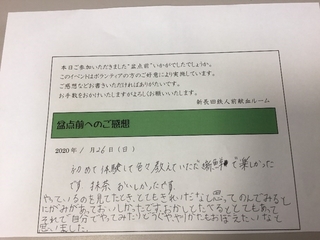 本日ご参加いただきました"盆点前"いかがでしたでしょうか。
このイベントはボランティアの方のご好意により実施しています。
ご感想などお書きいただければありがたいです。
お手数をおかけいたしますがよろしくお願いいたします。
新長田鉄人前献血ルーム
盆点前へのご感想
2020年1月26日(日)
初めて体験して色々教えていただき新鮮で楽しかった
です 抹茶おいしかったです
やっているのを見てたとき、とてもきれいだなと思ってのんでみると
にがみがあっておいしかったです。おかしとたべるととてもあって
それで自分でやってみたりどうぐや、やりかたもおぼえたいなと
思いました。